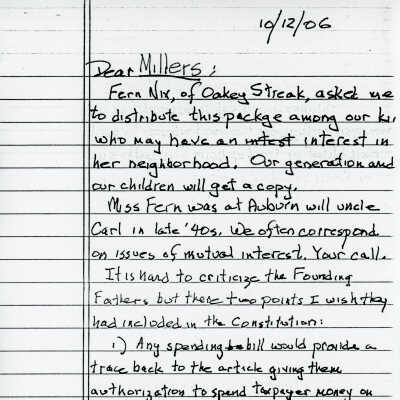 10/12/06
Dear Millers;
Fern Nix, of Oakey Streak, asked me
to distribute this packge among our
who may have an intest interest in
her neighborhood. Our generation and
our children will get a copy.
Miss Fern was at Auburn will uncle
Carl in late '40s. We often correspond
on issues of mutual interest. Your call.
It is hard to criticize the Founding
Fathers but there two points I wish they
had included in the Constitution:
1) Any spending bill would provide a
trace back to the article giving them
authorization to spend taxpayer money on